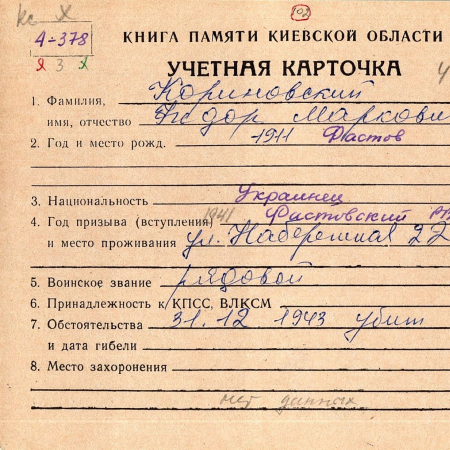 кс X
102
А-378
я 3 х
КНИГА ПАМЯТИ КИЕВСКОЙ ОБЛАСТИ
УЧЕТНАЯ КАРТОЧКА
1. Фамилия, Кориновский
имя, отчество Федор Маркови
2. Год и место рожд. -1911 Фастов
3. Национальность Украинец
4. Год призыва (вступления) 1941 Фастовский
и место проживания ул. Набережная 22
5. Воинское звание рядовой
6. Принадлежность к КПСС, ВЛКСМ
7. Обстоятельства 31.12 1943 убит
и дата гибели
8. Место захоронения
нет данных